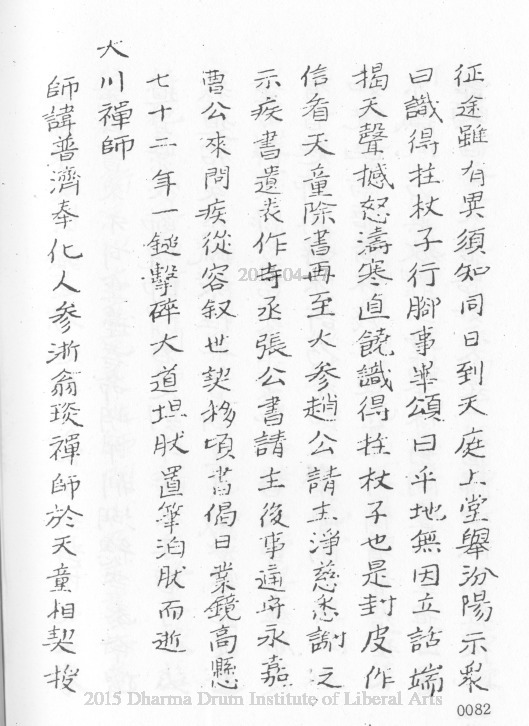 征途雖有異須知同日到天庭上堂舉汾陽示眾
曰識得拄杖子行腳事畢頌曰平地無因立話端
揭天聲撼怒濤寒直饒識得拄杖子也是封皮作
信看天童除書再至大參趙公請主淨慈悉謝之
示疾書遺表作寺丞張公書請主後事適守永嘉
曹公來問疾從容叙世契移頃書偈曰業鏡高懸
七十二年一鎚擊碎大道坦肰置筆泊肰而逝
大川禪師
師諱普濟奉化人參浙翁琰禪師於天童相契授
2015-04-
2015 Dharma Drum Institute of Liberal Arts
0082